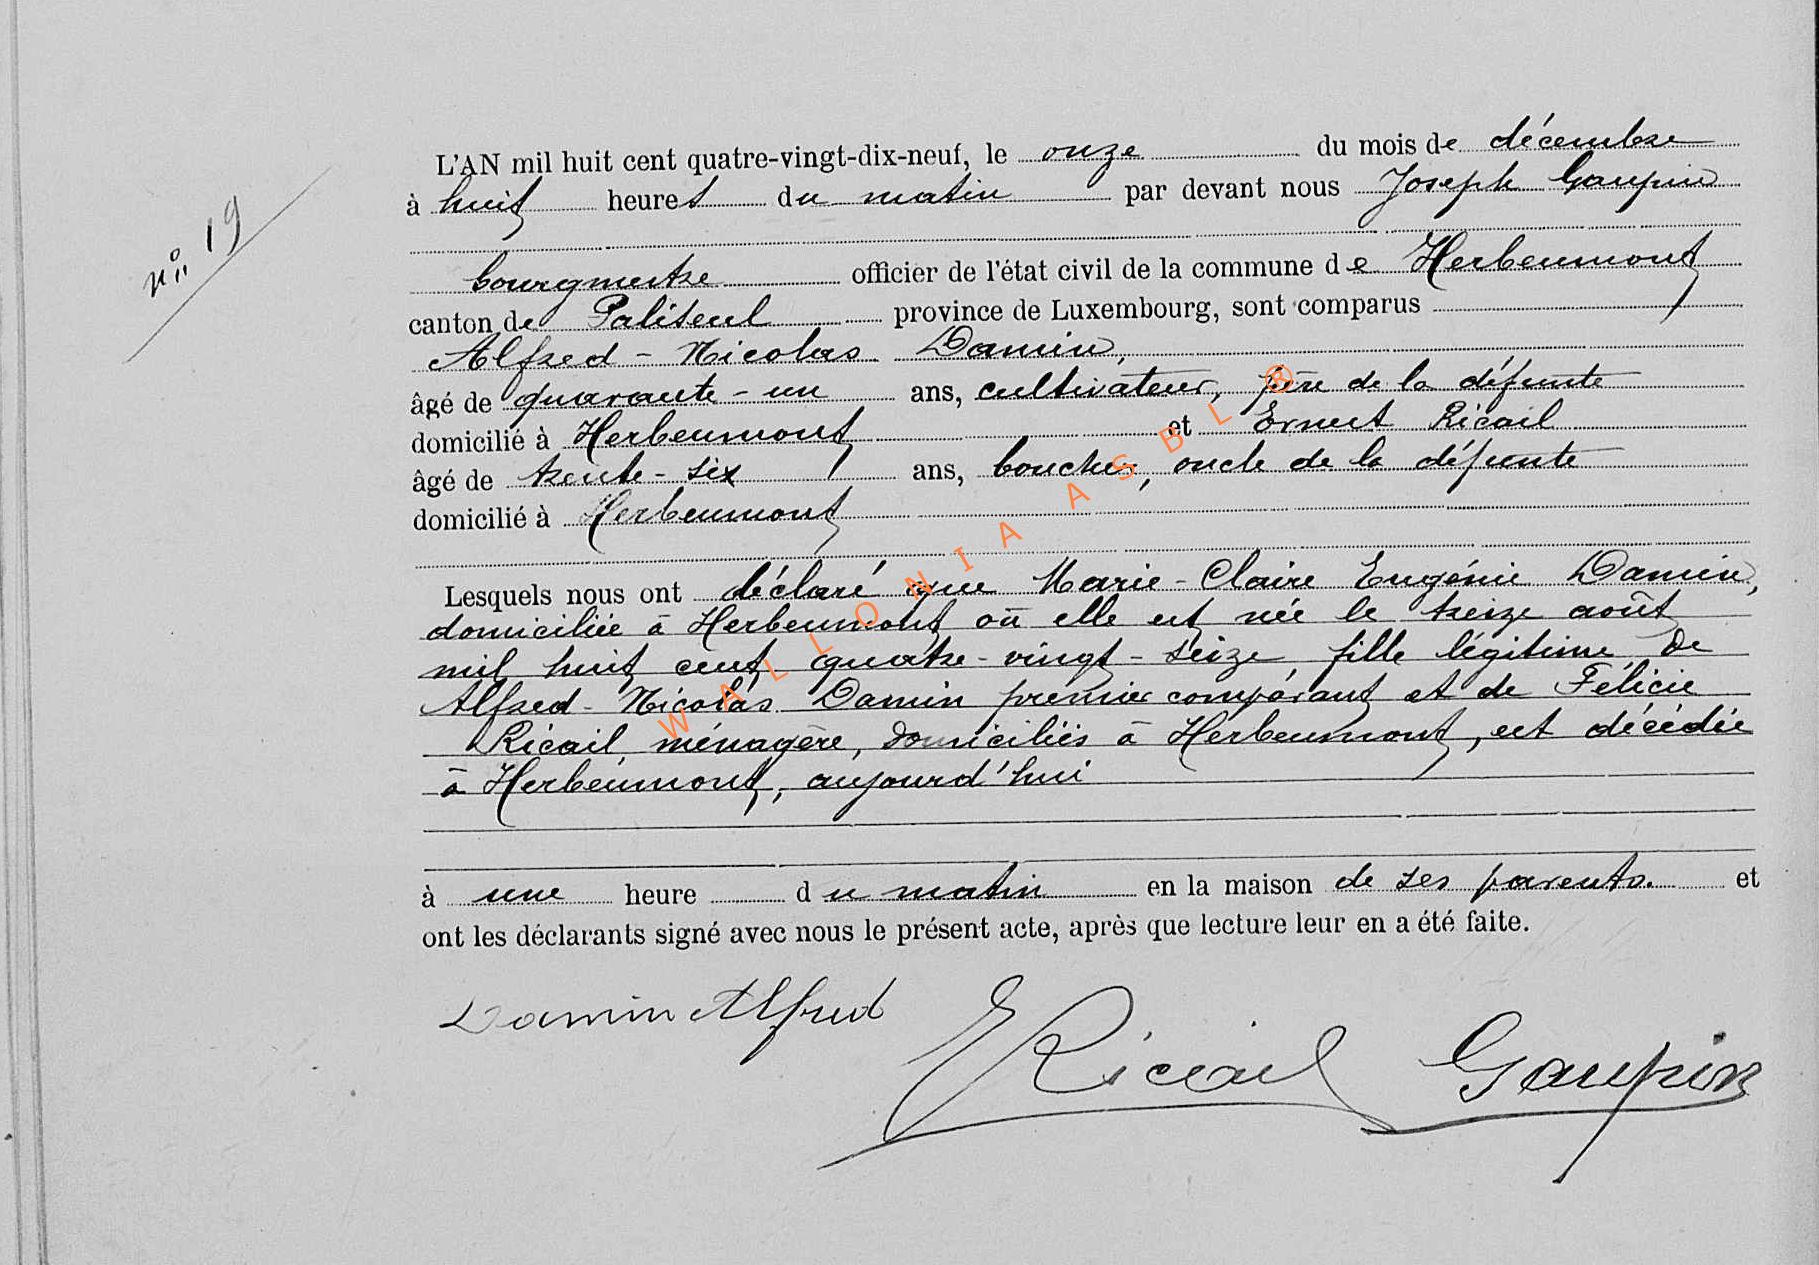 n° 19
L'AN mil huit cent quatre-vingt-dix-neuf, le onze du mois de décembre
à huit heures du matin par devant nous Joseph Gaupin
bourgmestre officier de l'état civil de la commune de Herbeumont
canton de Paliseul province de Luxembourg, sont comparus
Alfred - Nicolas Damin,
âgé de quarante - un ans, cultivateur, père de la défunte
domicilié à Herbeumont et Ernest Ricail
âgé de trente - six ans, boucher, oncle de la défunte
domicilié à Herbeumont
Lesquels nous ont déclaré que Marie - Claire Eugénie Damin,
domiciliée à Herbeumont où elle est née le treize août
mil huit cent quatre - vingt - seize fille légitime de
Alfred - Nicolas Damin premier comparant et de Félicie
Ricail, ménagère, domiciliés à Herbeumont, est décédée
à Herbeumont, aujourd'hui
à une heure du matin en la maison de ses parents. et
ont les déclarants signé avec nous le présent acte, après que lecture leur en a été faite.
Damin Alfred E Ricail Gaupin
WALLONIA ASBL ®